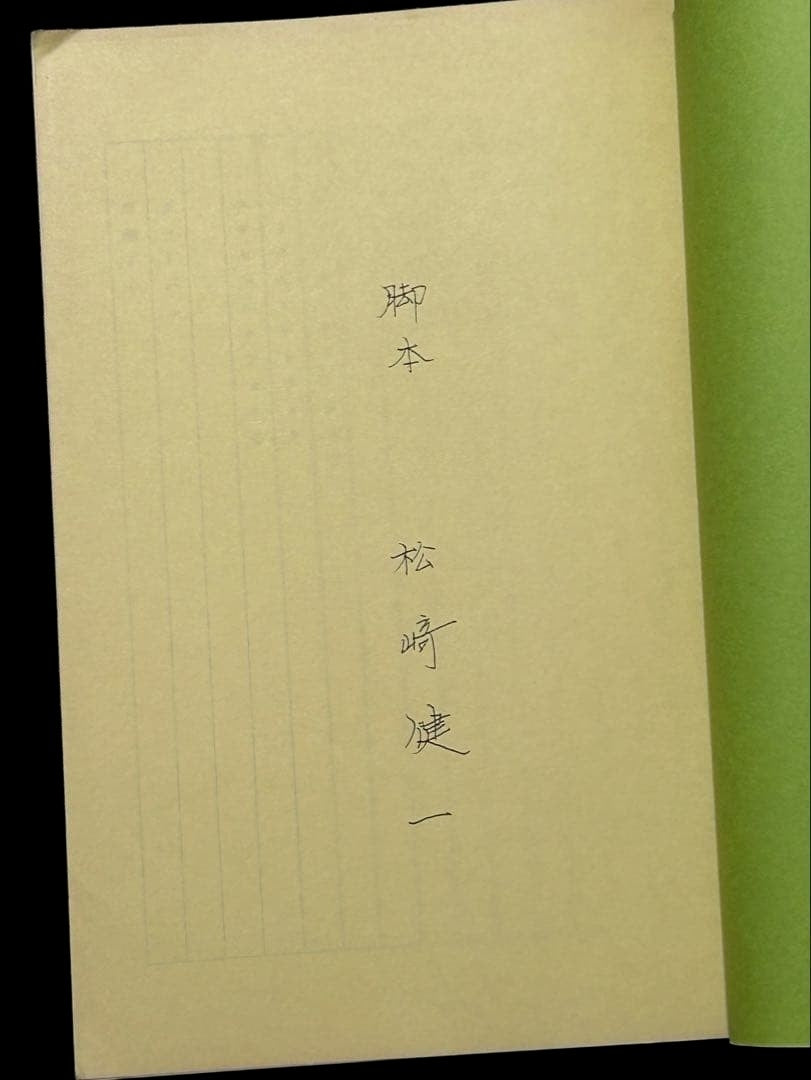 脚本
松﨑健一